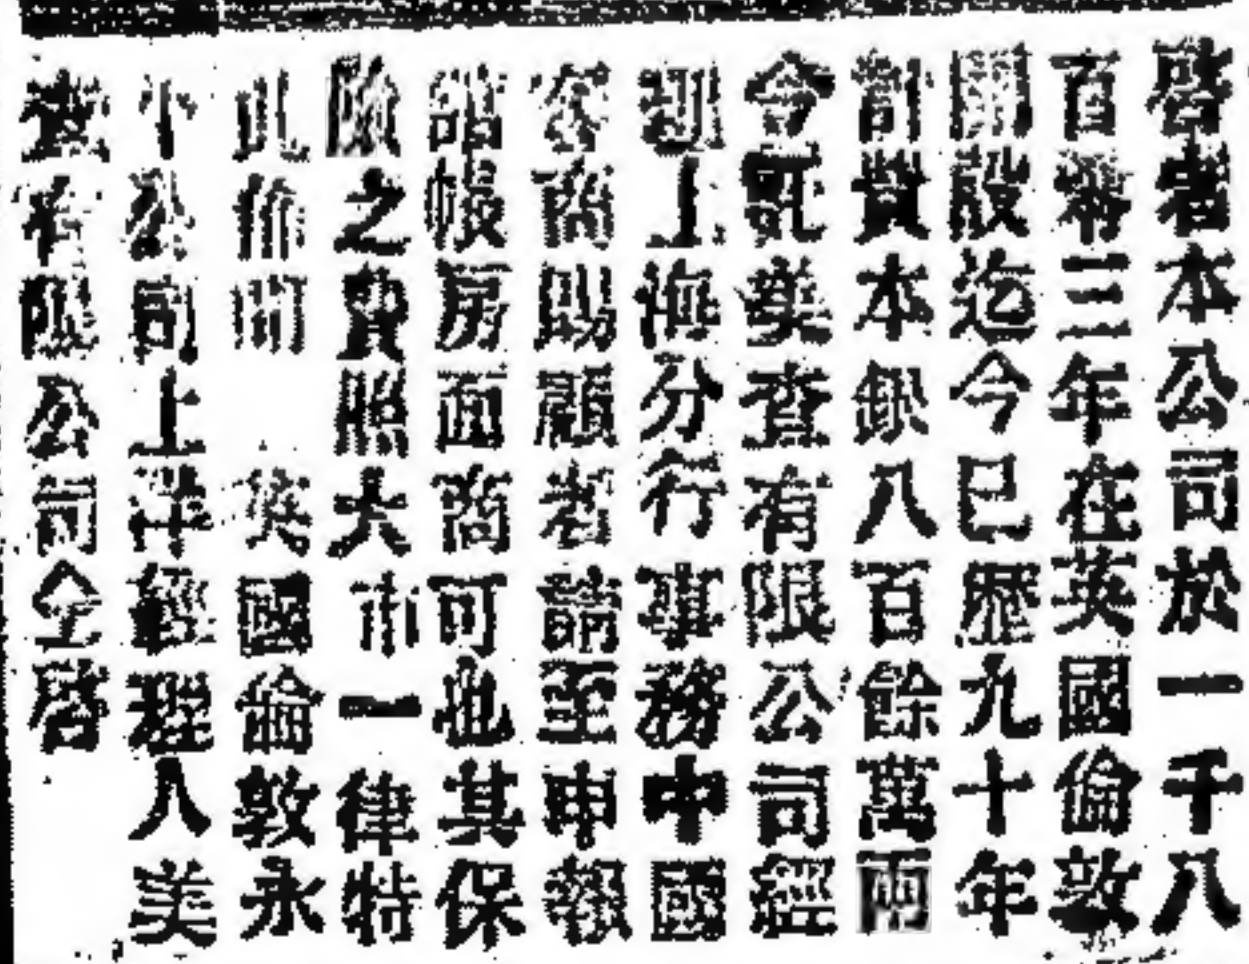 啓者本公司於一千八
百零三年在英國倫敦
開設迄今已歷九十年
計資本銀八百餘萬兩
今託美查有限公司經
理上海分行事務中國
客商賜顧者請至申報
舘帳房面商可也其保
險之費照大市一律特
此佈聞 英國倫敦永
小公司上洋經理人美
查有限公司仝啓